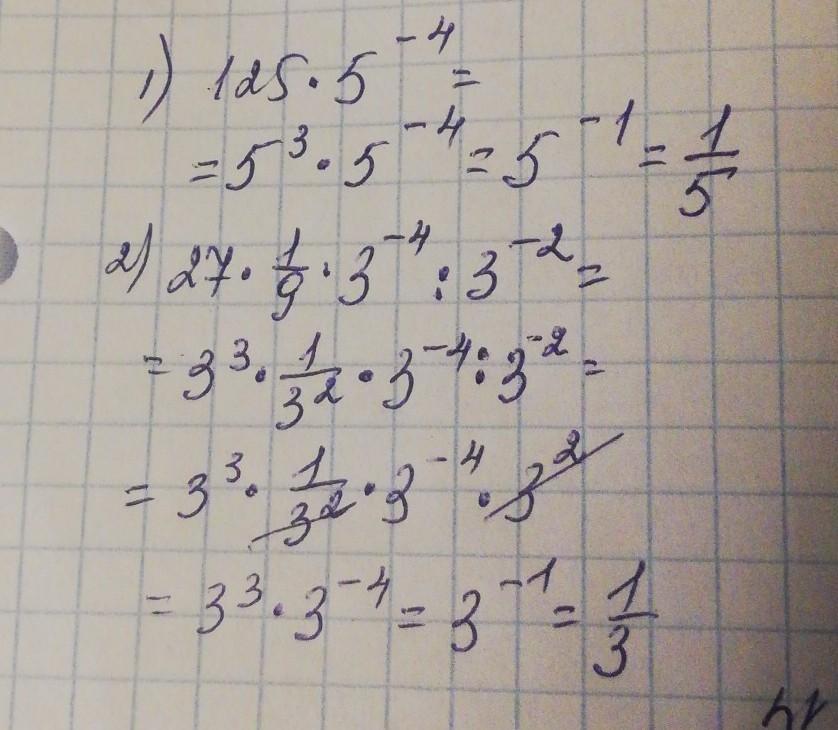 1) 125 · 5⁻⁴ =
= 5³ · 5⁻⁴ = 5⁻¹ = 1/5
2) 27 · 1/9 · 3⁻⁴ : 3⁻² =
= 3³ · 1/3² · 3⁻⁴ : 3⁻² =
= 3³ · 1/3² · 3⁻⁴ · 3²
= 3³ · 3⁻⁴ = 3⁻¹ = 1/3